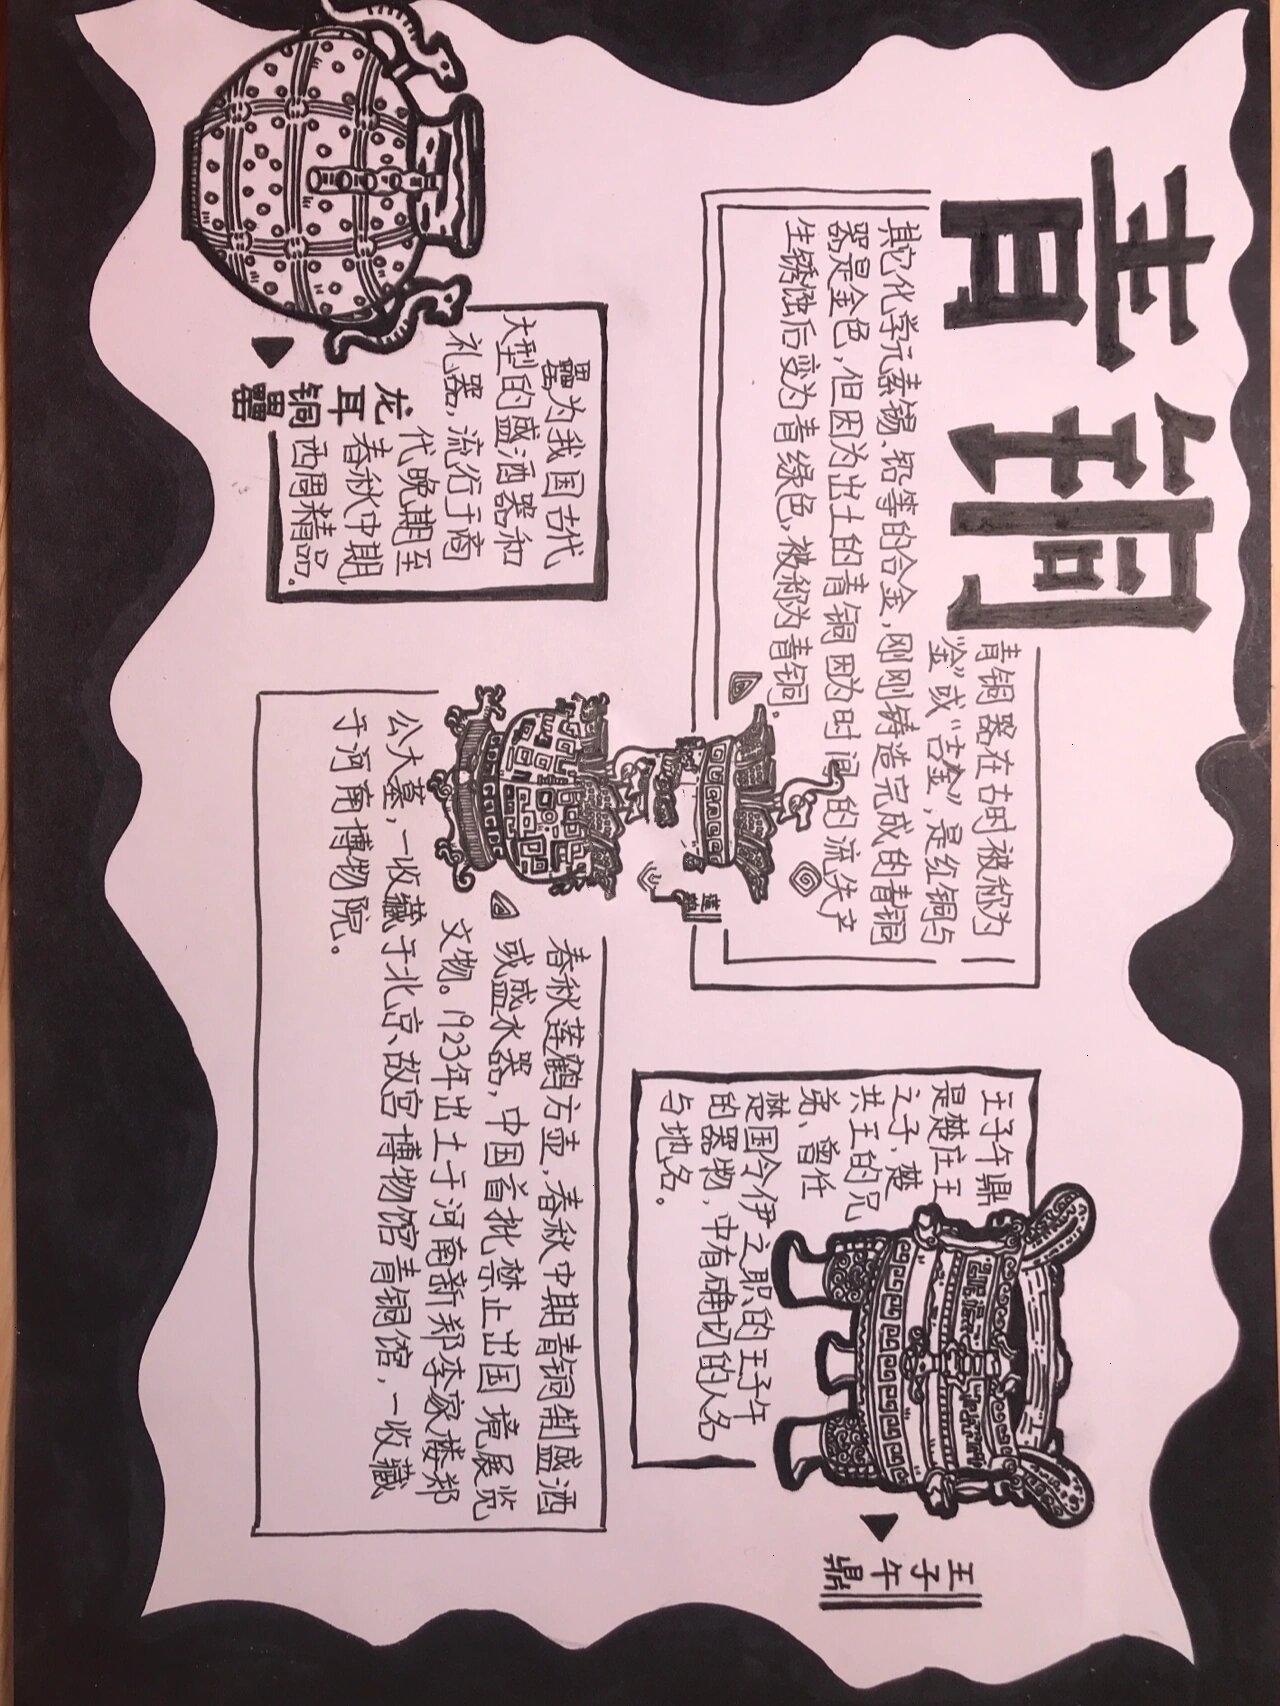 青铜
青铜器在古时被称为
"金"或"吉金",是红铜与
其它化学元素锡、铅等的合金,刚刚铸造完成的青铜
器是金色,但因为出土的青铜因为时间的流失产
生锈蚀后变为青绿色,被称为青铜.
王子午鼎
是楚庄王
之子,楚
共王的兄
弟、曾任
楚国令伊之职的王子午
的器物,中有确切的人名
与地名。
王子午鼎
罍为我国古代
大型的盛酒器和
礼器,流行于商
代晚期至
春秋中期,
西周精品.
龙耳铜罍
春秋莲鹤方壶,春秋中期青铜制盛酒
或盛水器,中国首批禁止出国境展览
文物。1923年出土于河南新郑李家楼郑
公大墓,一收藏于北京故宫博物馆青铜馆,一收藏
于河南博物院。